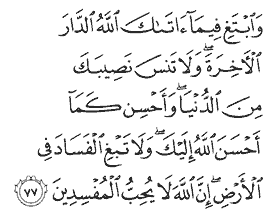 وَٱبْتَغِ فِيمَآ ءَاتَىٰكَ ٱللَّهُ ٱلدَّارَ
ٱلْأَخِرَةَ ۖ وَلَا تَنسَ نَصِيبَكَ
مِنَ ٱلدُّنْيَا ۖ وَأَحْسِن كَمَآ
أَحْسَنَ ٱللَّهُ إِلَيْكَ ۖ وَلَا تَبْغِ ٱلْفَسَادَ فِى
ٱلْأَرْضِ ۖ إِنَّ ٱللَّهَ لَا يُحِبُّ ٱلْمُفْسِدِينَ ٧٧